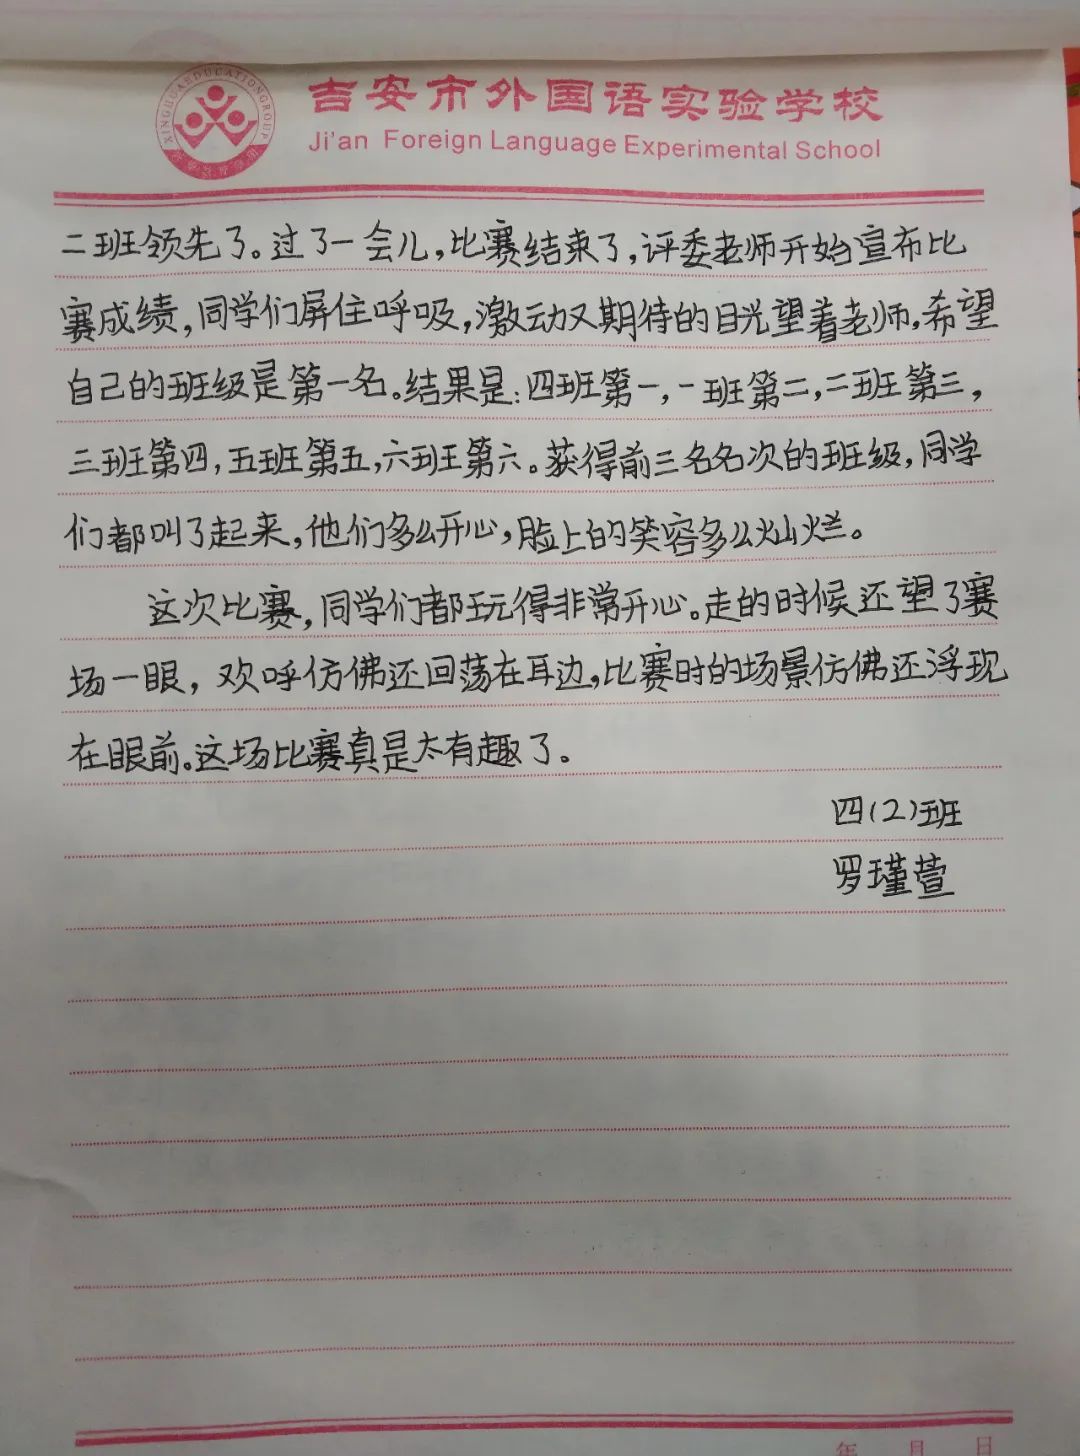 XINGHUAEDUCATIONGROUP
吉安市外国语实验学校
Ji'an Foreign Language Experimental School
二班领先了。过了一会儿,比赛结束了,评委老师开始宣布比
赛成绩,同学们屏住呼吸,激动又期待的目光望着老师,希望
自己的班级是第一名。结果是:四班第一,一班第二,二班第三,
三班第四,五班第五,六班第六。获得前三名名次的班级,同学
们都叫了起来,他们多么开心,脸上的笑容多么灿烂。
这次比赛,同学们都玩得非常开心。走的时候还望了赛
场一眼,欢呼仿佛还回荡在耳边,比赛时的场景仿佛还浮现
在眼前。这场比赛真是太有趣了。
四(2)班
罗瑾萱
年 月 日